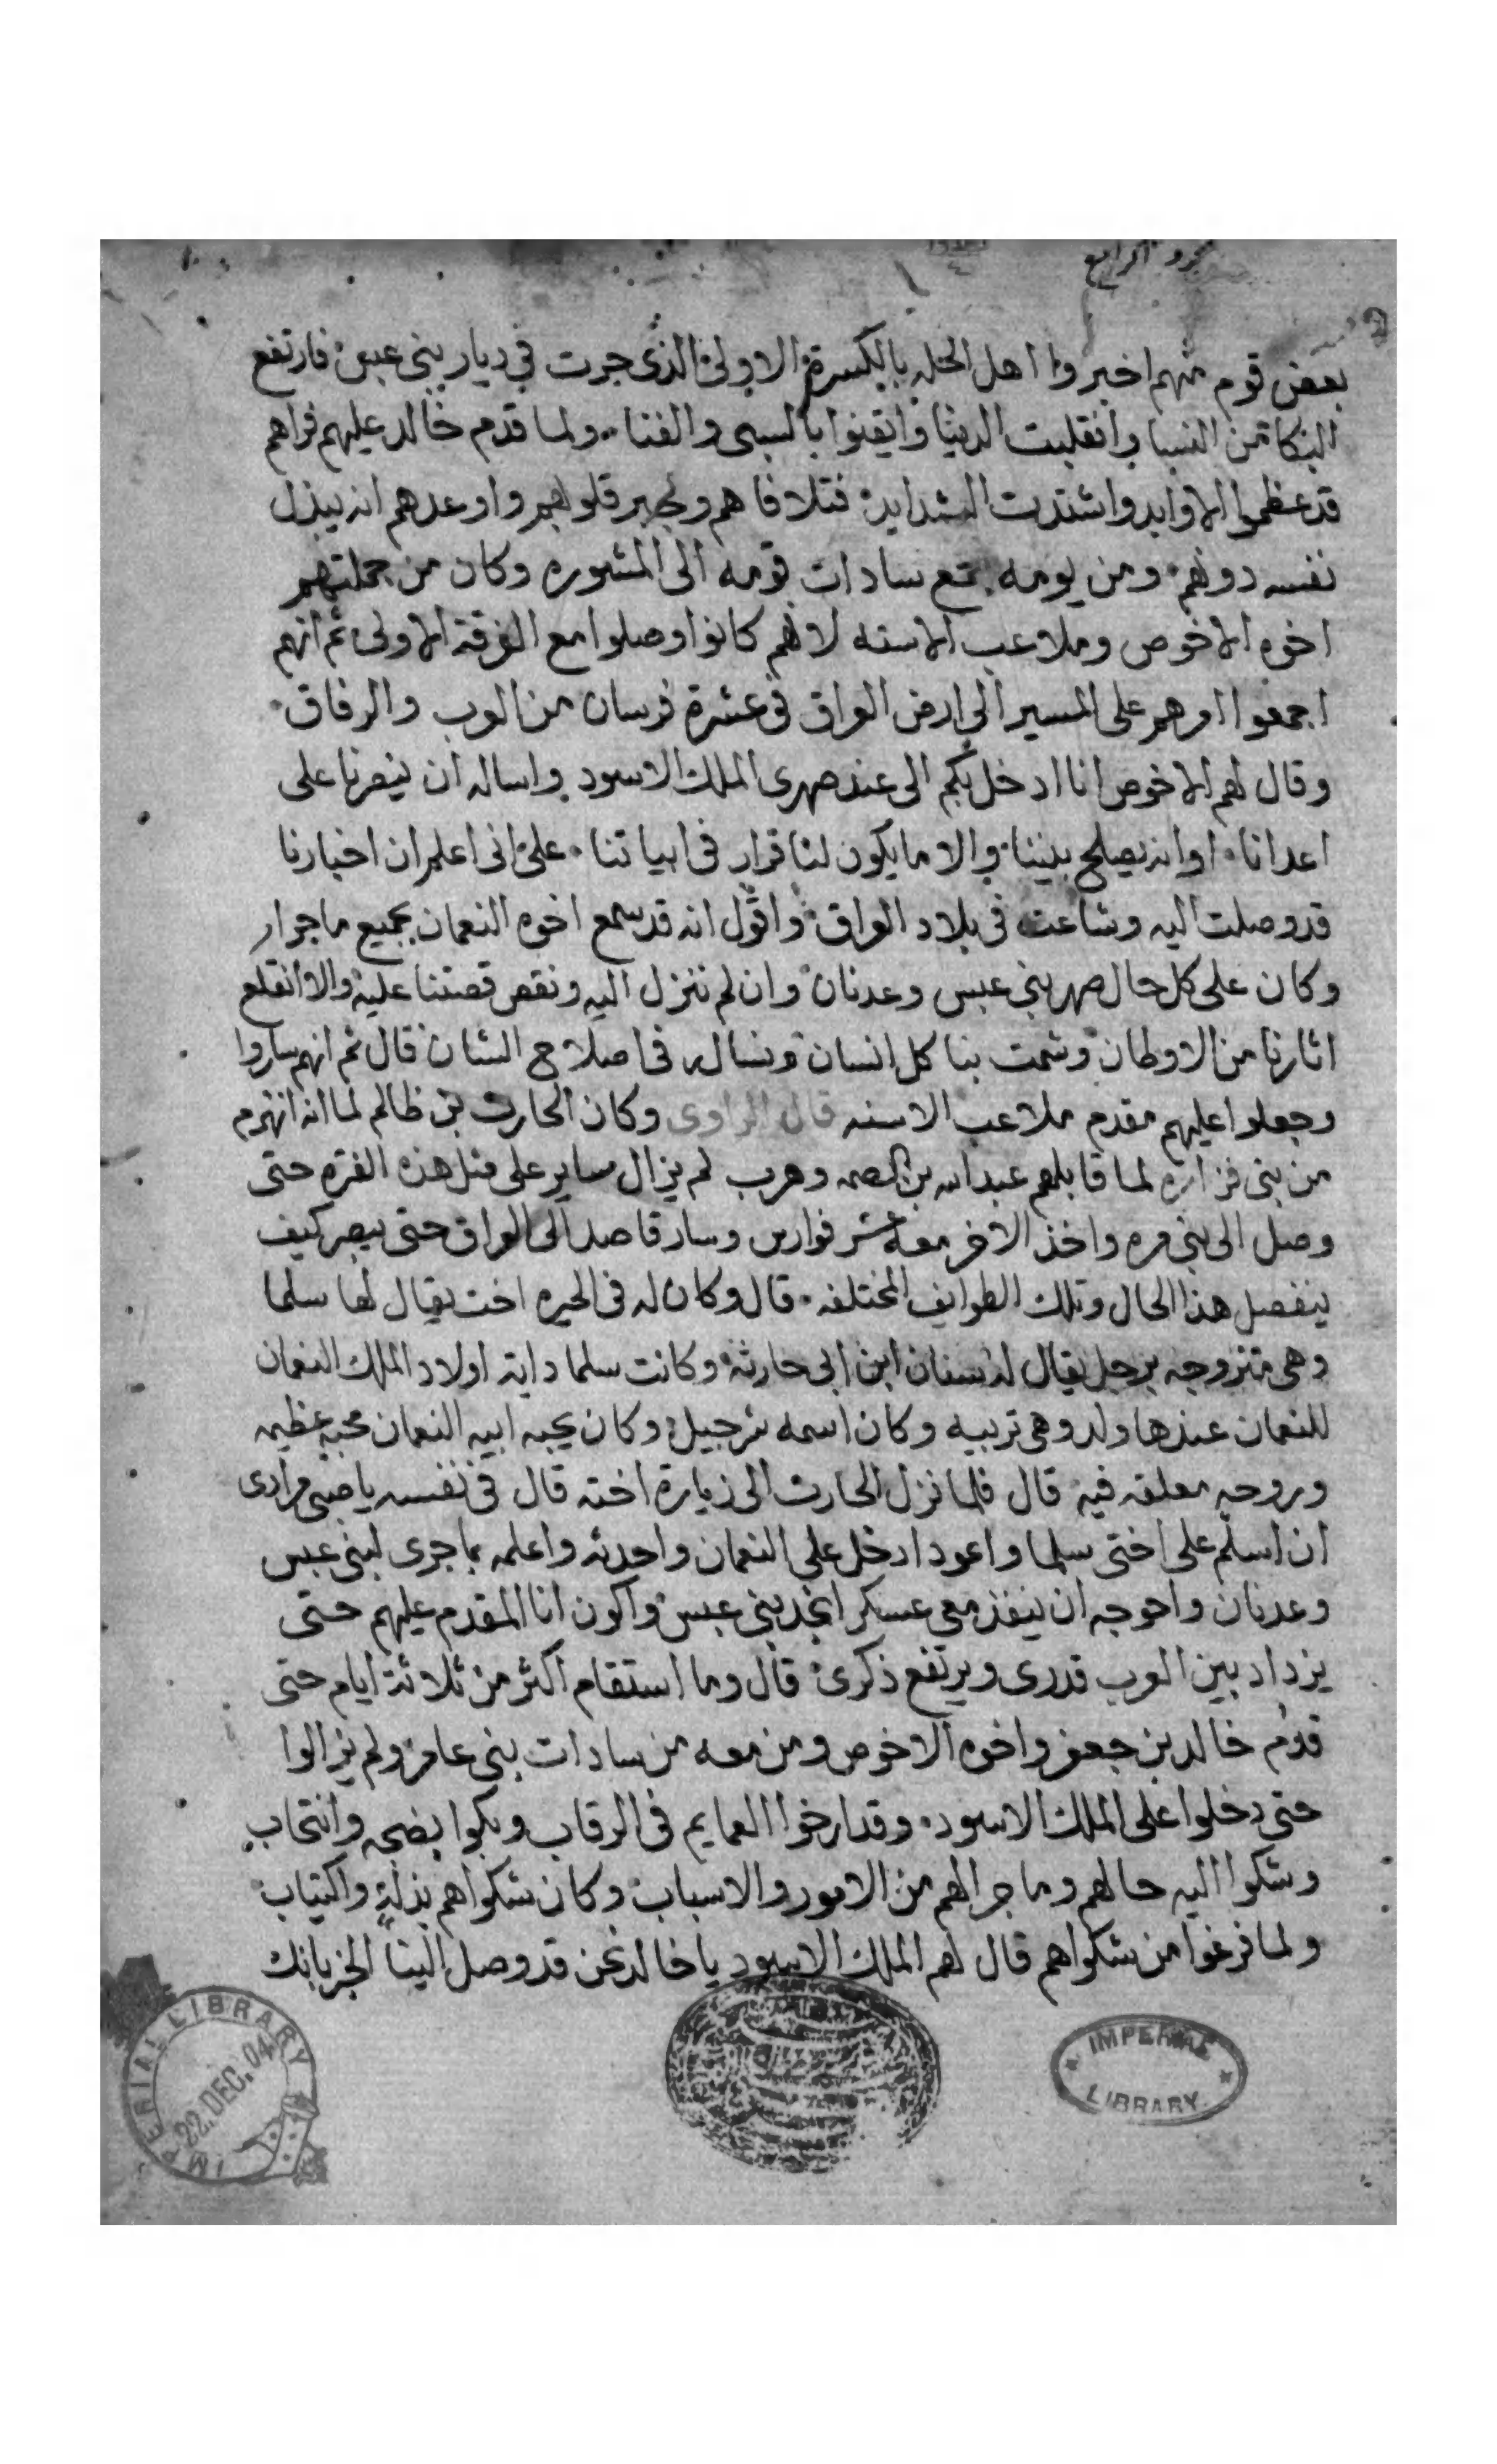 الرابع
بعض قوم منهم اخبروا اهل الحله بالكسرة الاولى الذى جرت في ديار بني عبس فارتفع
البكا من النسا وانقلبت الدنيا وايقنوا بالسبى والفنا ولما قدم خالد عليهم فراهم
قد عظموا الاوابد واشتدت الشدايد فتلافاهم وجبر قلوبهم واوعدهم انه يبذل
نفسه دونهم ومن يومه جمع سادات قومه الى المشوره وكان من جملتهم
اخوه الاخوص وملاعب الاسنه لانهم كانوا وصلوا مع الفرقة الاولى ثم انهم
اجمعوا امرهم على المسير الى ارض العراق في عشرة فرسان من العرب والرفاق
وقال لهم الاخوص انا ادخل بكم الى عند صهرى الملك الاسود واساله ان ينصرنا على
اعدانا او انه يصلح بيننا والا ما يكون لنا قرار في ابياتنا على انى اعلم ان اخبارنا
قد وصلت اليه وشاعت في بلاد العراق واقول انه قد سمع اخوه النعمان بجميع ما جرا
وكان على كل حال صهر بني عبس وعدنان وان لم ننزل اليه ونقص قصتنا عليه والا انقلع
اثارنا من الاوطان وشمت بنا كل انسان ونساله في اصلاح الشان قال ثم انهم ساروا
وجعلوا عليهم مقدم ملاعب الاسنه قال الراوى وكان الحارث بن ظالم لما انه انهزم
من بنى فزاره لما قابلهم عبد الله بن الصمه وهرب لم يزال ساير على مثل هذه الفتره حتى
وصل الى بني مره واخذ الاخر معه عشر فوارس وسار قاصد الى العراق حتى يبصر كيف
ينفصل هذا الحال وتلك الطوايف المختلفه قال وكان له في الحيره اخت يقال لها سلما
وهى متزوجه برجل يقال له سنان ابن ابى حارثة وكانت سلما داية اولاد الملك النعمان
للنعمان عندها ولد وهى تربيه وكان اسمه شرجيل وكان يحبه ابيه النعمان محبه عظيمه
وروحه معلقه فيه قال فلما نزل الحارث الى زيارة اخته قال في نفسه مرادى
ان اسلم على اختى سلما واعود ادخل على النعمان واحدثه واعلمه بما جرى لبنى عبس
وعدنان واحوجه ان ينفذ معى عسكر انجد بني عبس واكون انا المقدم عليهم حتى
يزداد بين العرب قدرى ويرتفع ذكرى قال وما استقام اكثر من ثلاثة ايام حتى
قدم خالد بن جعفر واخوه الاخوص ومن معه من سادات بنى عامر ولم يزالوا
حتى دخلوا على الملك الاسود وقد ارخوا العمايم في الرقاب وبكوا بضجه وانتحاب
وشكوا اليه حالهم وما جرا لهم من الامور والاسباب وكان شكواهم بذلة واكتياب
ولما فرغوا من شكواهم قال لهم الملك الاسود يا خالد نحن قد وصل الينا الخبر بانك
IMPERIAL LIBRARY 22.DEC.04
IMPERIAL LIBRARY